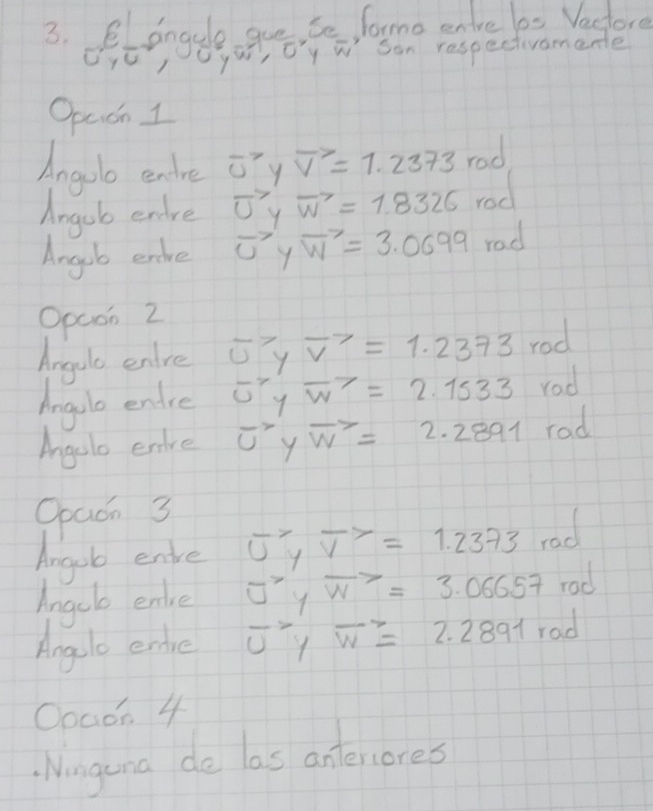 3. El ángulo que se forma entre los Vectore
U⃗ y U⃗, U⃗ y W⃗, U⃗ y W⃗ son respectivamente
Opción 1
Angulo entre U⃗ y V⃗ = 1.2373 rad
Angulo entre U⃗ y W⃗ = 1.8326 rad
Angulo entre U⃗ y W⃗ = 3.0699 rad
Opción 2
Angulo entre U⃗ y V⃗ = 1.2373 rad
Angulo entre U⃗ y W⃗ = 2.1533 rad
Angulo entre U⃗ y W⃗ = 2.2891 rad
Opción 3
Angulo entre U⃗ y V⃗ = 1.2373 rad
Angulo entre U⃗ y W⃗ = 3.06657 rad
Angulo entre U⃗ y W⃗ = 2.2891 rad
Opción 4
.Ninguna de las anteriores